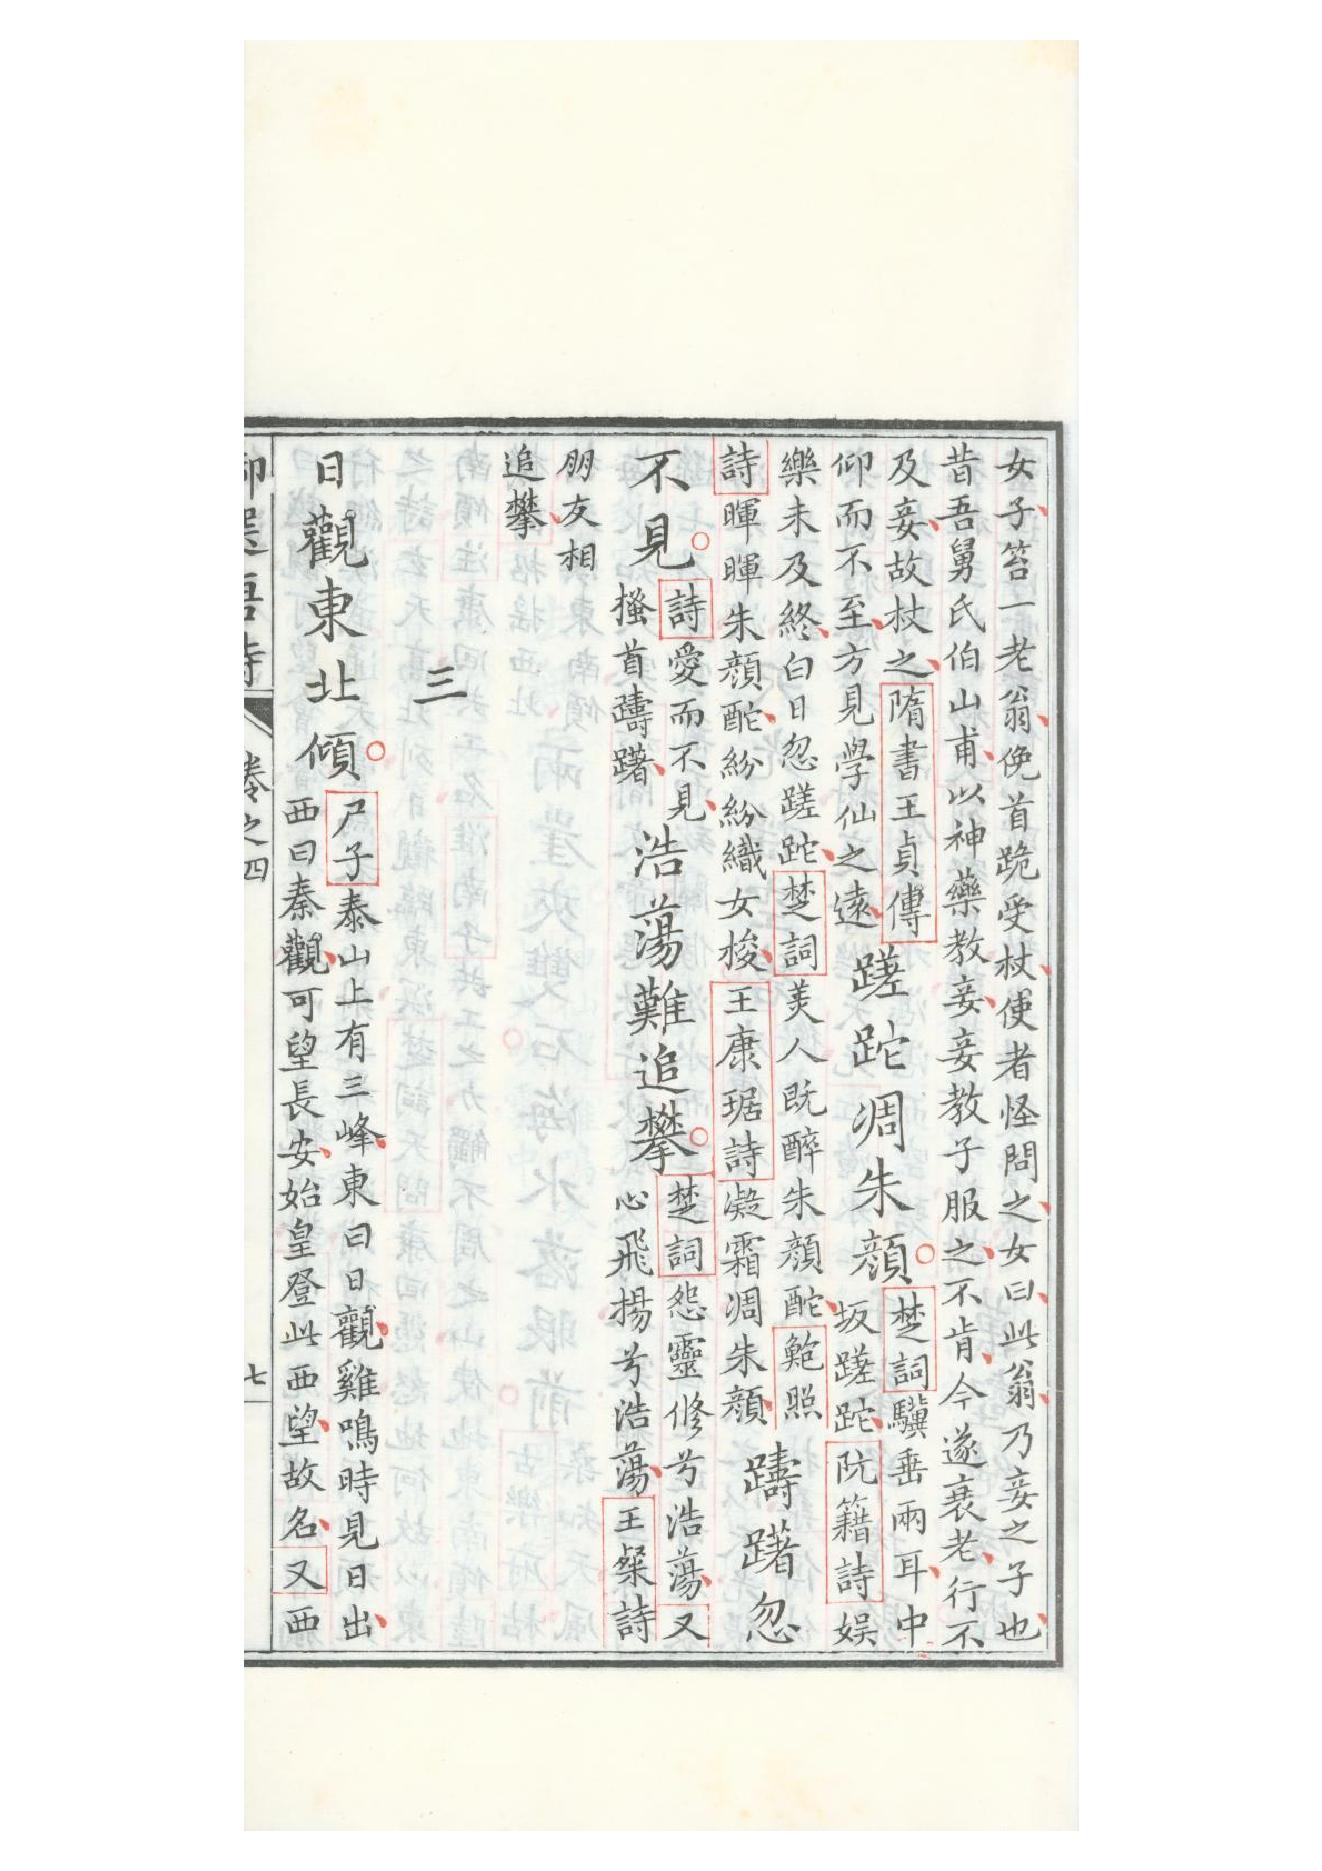 女子笞一老翁俛首跪受杖使者怪問之女曰此翁乃妾之子也
昔吾舅氏伯山甫以神藥教妾妾教子服之不肯今遂衰老行不
及妾故杖之隋書王貞傳
仰而不至方見學仙之遠
蹉跎凋朱顔
楚詞驥垂兩耳中
坂蹉跎阮籍詩娱
樂未及終白日忽蹉跎楚詞美人既醉朱顔酡鮑照
詩暉暉朱顔酡紛紛織女梭王康琚詩凝霜凋朱顔
躊躇忽
不見
詩愛而不見
搔首躊躇
浩蕩難追攀
楚詞怨靈修兮浩蕩又
心飛揚兮浩蕩王粲詩
朋友相
追攀
三
日觀東北傾
尸子泰山上有三峰東曰日觀雞鳴時見日出
西曰秦觀可望長安始皇登此西望故名又西
御選唐詩
卷之四
七